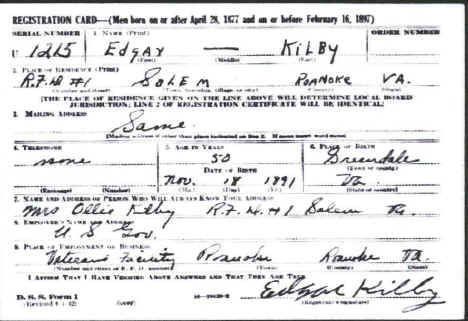 REGISTRATION CARD—(Men born on or after April 28, 1877 and on or before February 16, 1897)
SERIAL NUMBER 1. NAME (Print) ORDER NUMBER
U 1215 EDGAR — KILBY
(First) (Middle) (Last)
2. PLACE OF RESIDENCE (Print)
R.F.D #1 SALEM ROANOKE VA.
(Number and street) (Town, township, village or city) (County) (State)
[THE PLACE OF RESIDENCE GIVEN ON THE LINE ABOVE WILL DETERMINE LOCAL BOARD
JURISDICTION; LINE 2 OF REGISTRATION CERTIFICATE WILL BE IDENTICAL]
3. MAILING ADDRESS
Same
[Mailing address if other than place indicated on line 2. If same insert word same]
4. TELEPHONE 5. AGE IN YEARS 6. PLACE OF BIRTH
none 50
DATE OF BIRTH (Town or county)
Nov. 18 1891 Va
(Exchange) (Number) (Mo.) (Day) (Yr.) (State or country)
7. NAME AND ADDRESS OF PERSON WHO WILL ALWAYS KNOW YOUR ADDRESS
Mrs Ollie Kilby R.F.D. #1 Salem Va.
8. EMPLOYER'S NAME AND ADDRESS
U S Gov.
9. PLACE OF EMPLOYMENT OR BUSINESS
Veterans Facility Roanoke Roanoke Va.
(Number and street or R. F. D. number) (Town) (County) (State)
I AFFIRM THAT I HAVE VERIFIED ABOVE ANSWERS AND THAT THEY ARE TRUE.
Edgar Kilby
D. S. S. Form 1
(over) (Registrant's signature)